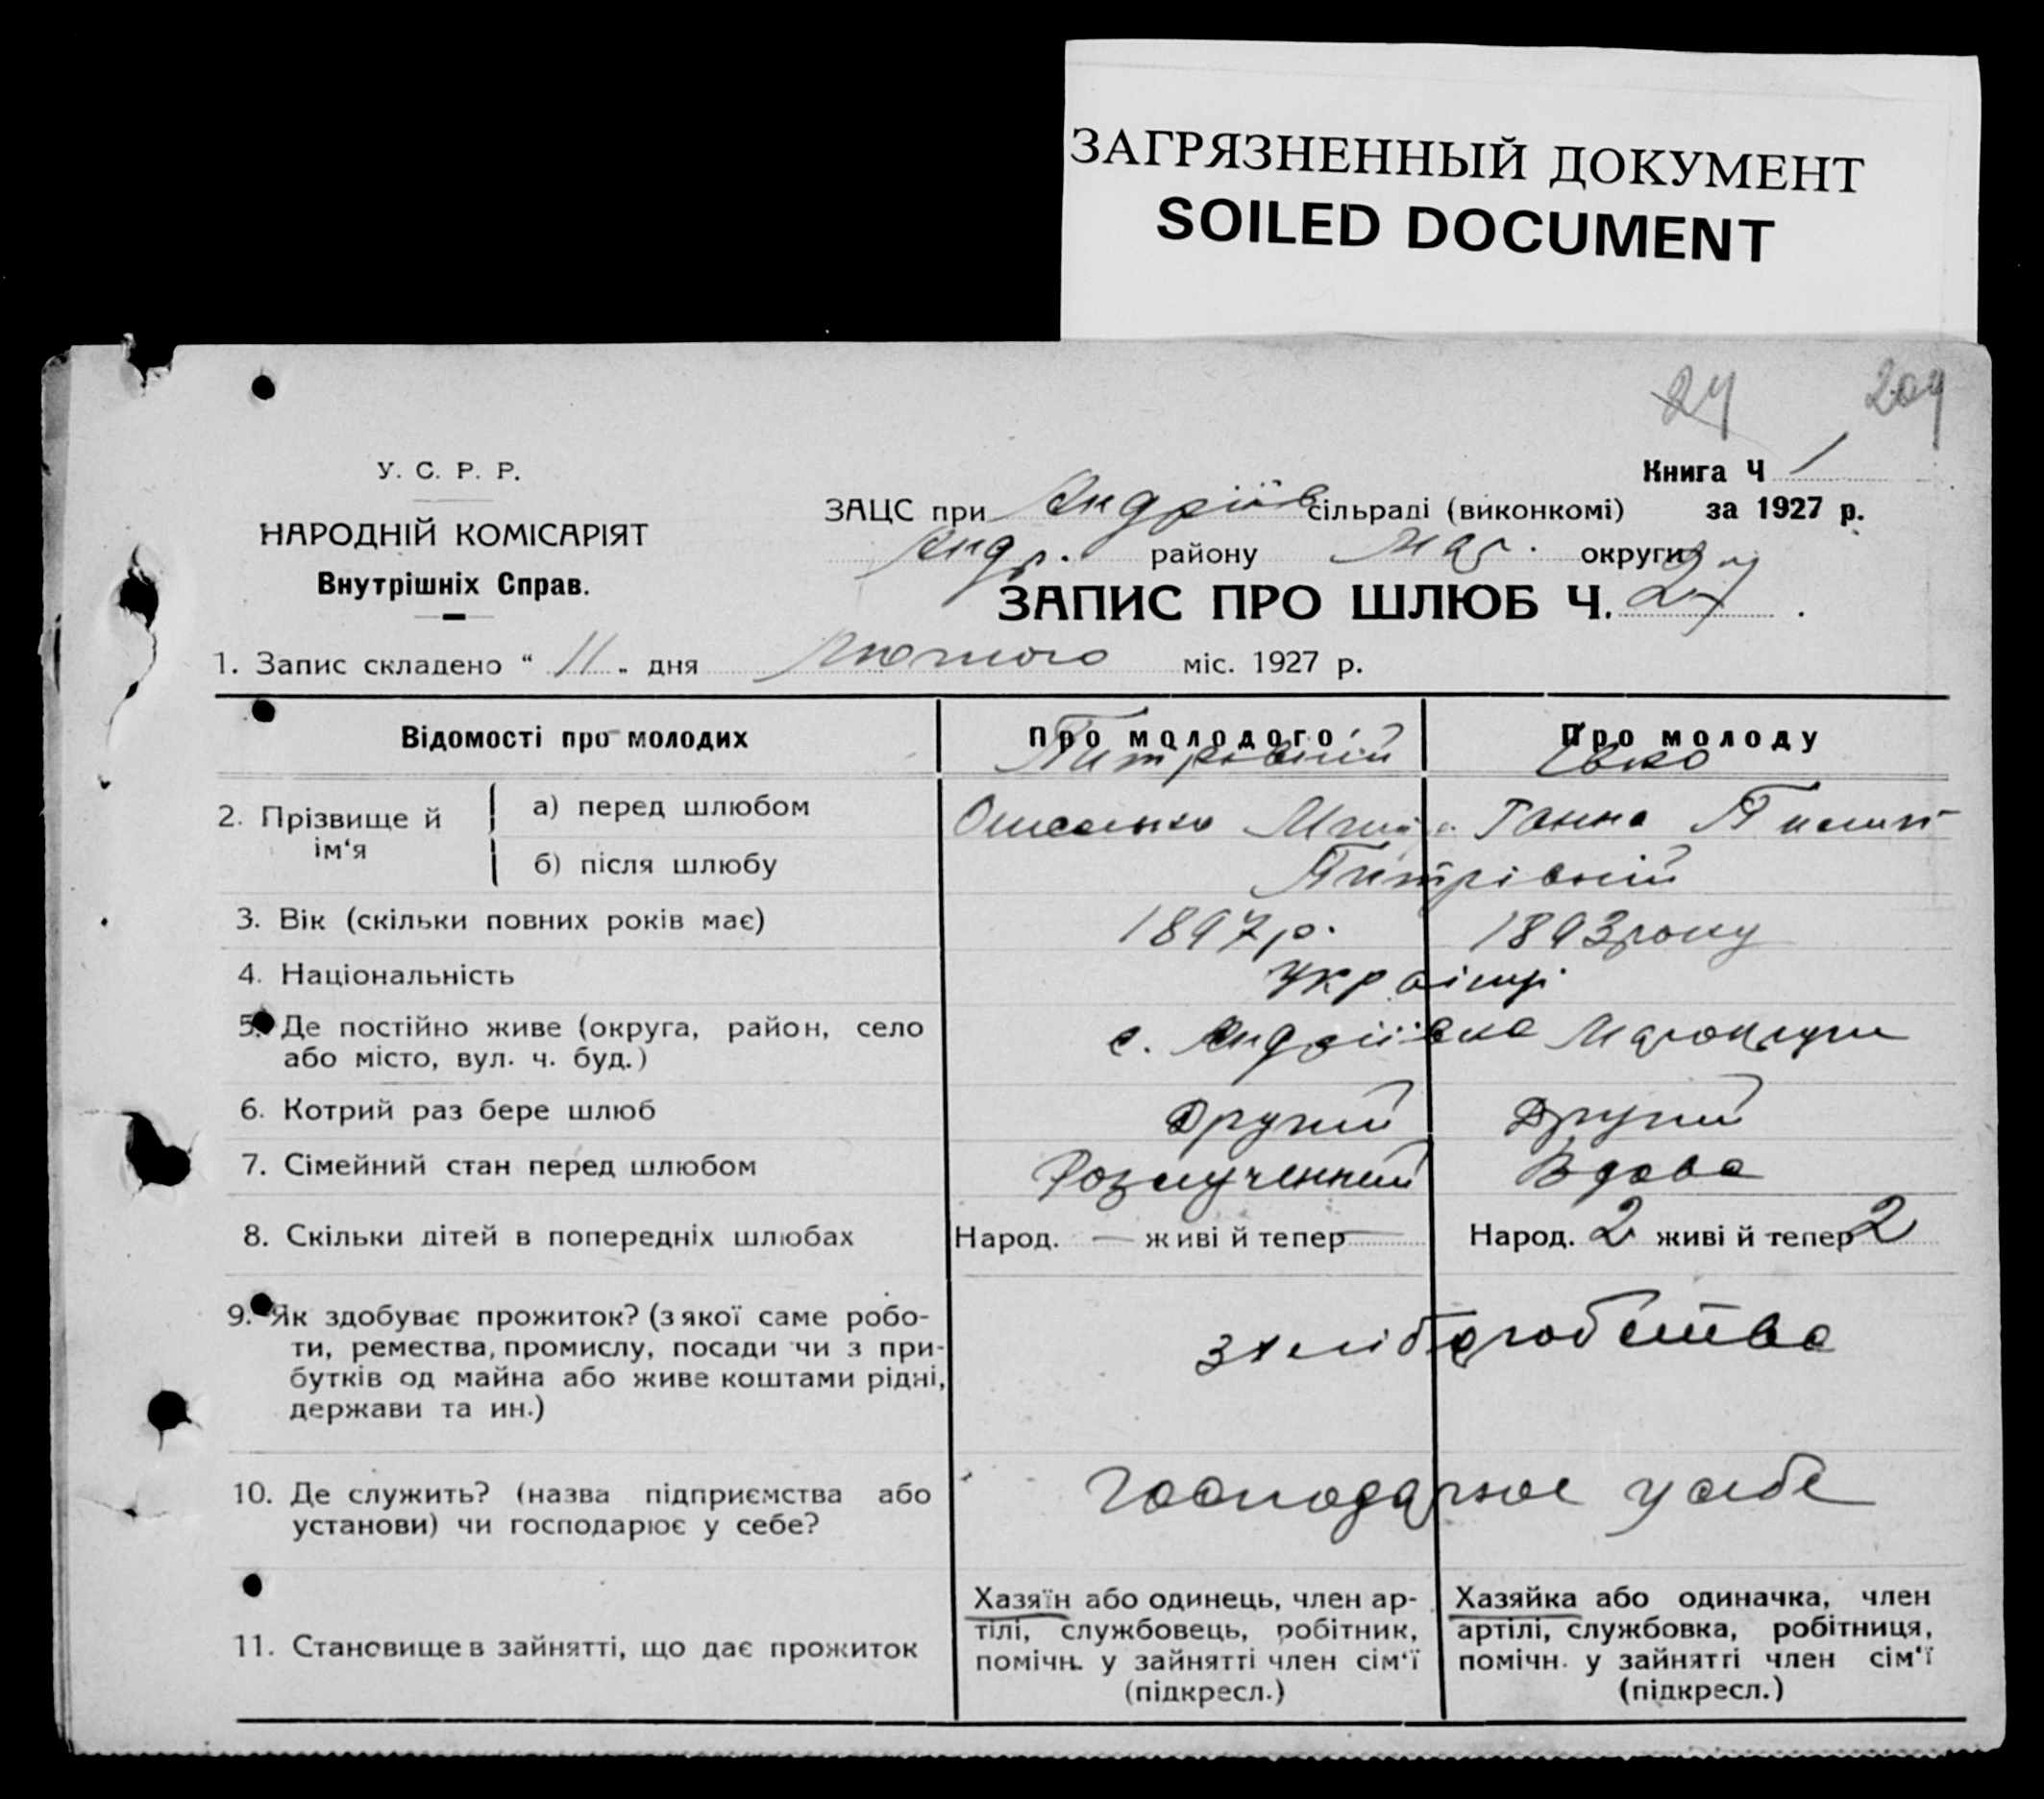 ЗАГРЯЗНЕННЫЙ ДОКУМЕНТ
SOILED DOCUMENT
24 204
У. С. Р. Р.
НАРОДНІЙ КОМІСАРІЯТ
Внутрішніх Справ.
Книга Ч 1
ЗАЦС при Андріїв сільраді (виконкомі) за 1927 р.
Андр. району Мар. округи
ЗАПИС ПРО ШЛЮБ Ч. 27
1. Запис складено “ 11 „ дня Лютого міс. 1927 р.
Відомості про молодих
Про молодого
Про молоду
2. Прізвище й ім‘я
а) перед шлюбом
Ганна
б) після шлюбу
Питрівній
3. Вік (скільки повних років має)
1897 р. 1893 року
4. Національність
українці
5. Де постійно живе (округа, район, село
або місто, вул. ч. буд.)
с. Андріївка Мар округи
6. Котрий раз бере шлюб
Другий Другий
7. Сімейний стан перед шлюбом
Розлученний Вдова
8. Скільки дітей в попередніх шлюбах
Народ. — живі й тепер —
Народ. 2 живі й тепер 2
9. Як здобуває прожиток? (з якої саме робо-
ти, ремества, промислу, посади чи з при-
бутків од майна або живе коштами рідні,
держави та ин.)
з хліборобства
10. Де служить? (назва підприємства або
установи) чи господарює у себе?
Господарює у себе
11. Становище в зайнятті, що дає прожиток
Хазяїн або одинець, член ар-
тілі, службовець, робітник,
помічн. у зайнятті член сім‘ї
(підкресл.)
Хазяйка або одиначка, член
артілі, службовка, робітниця,
помічн. у зайнятті член сім‘ї
(підкресл.)